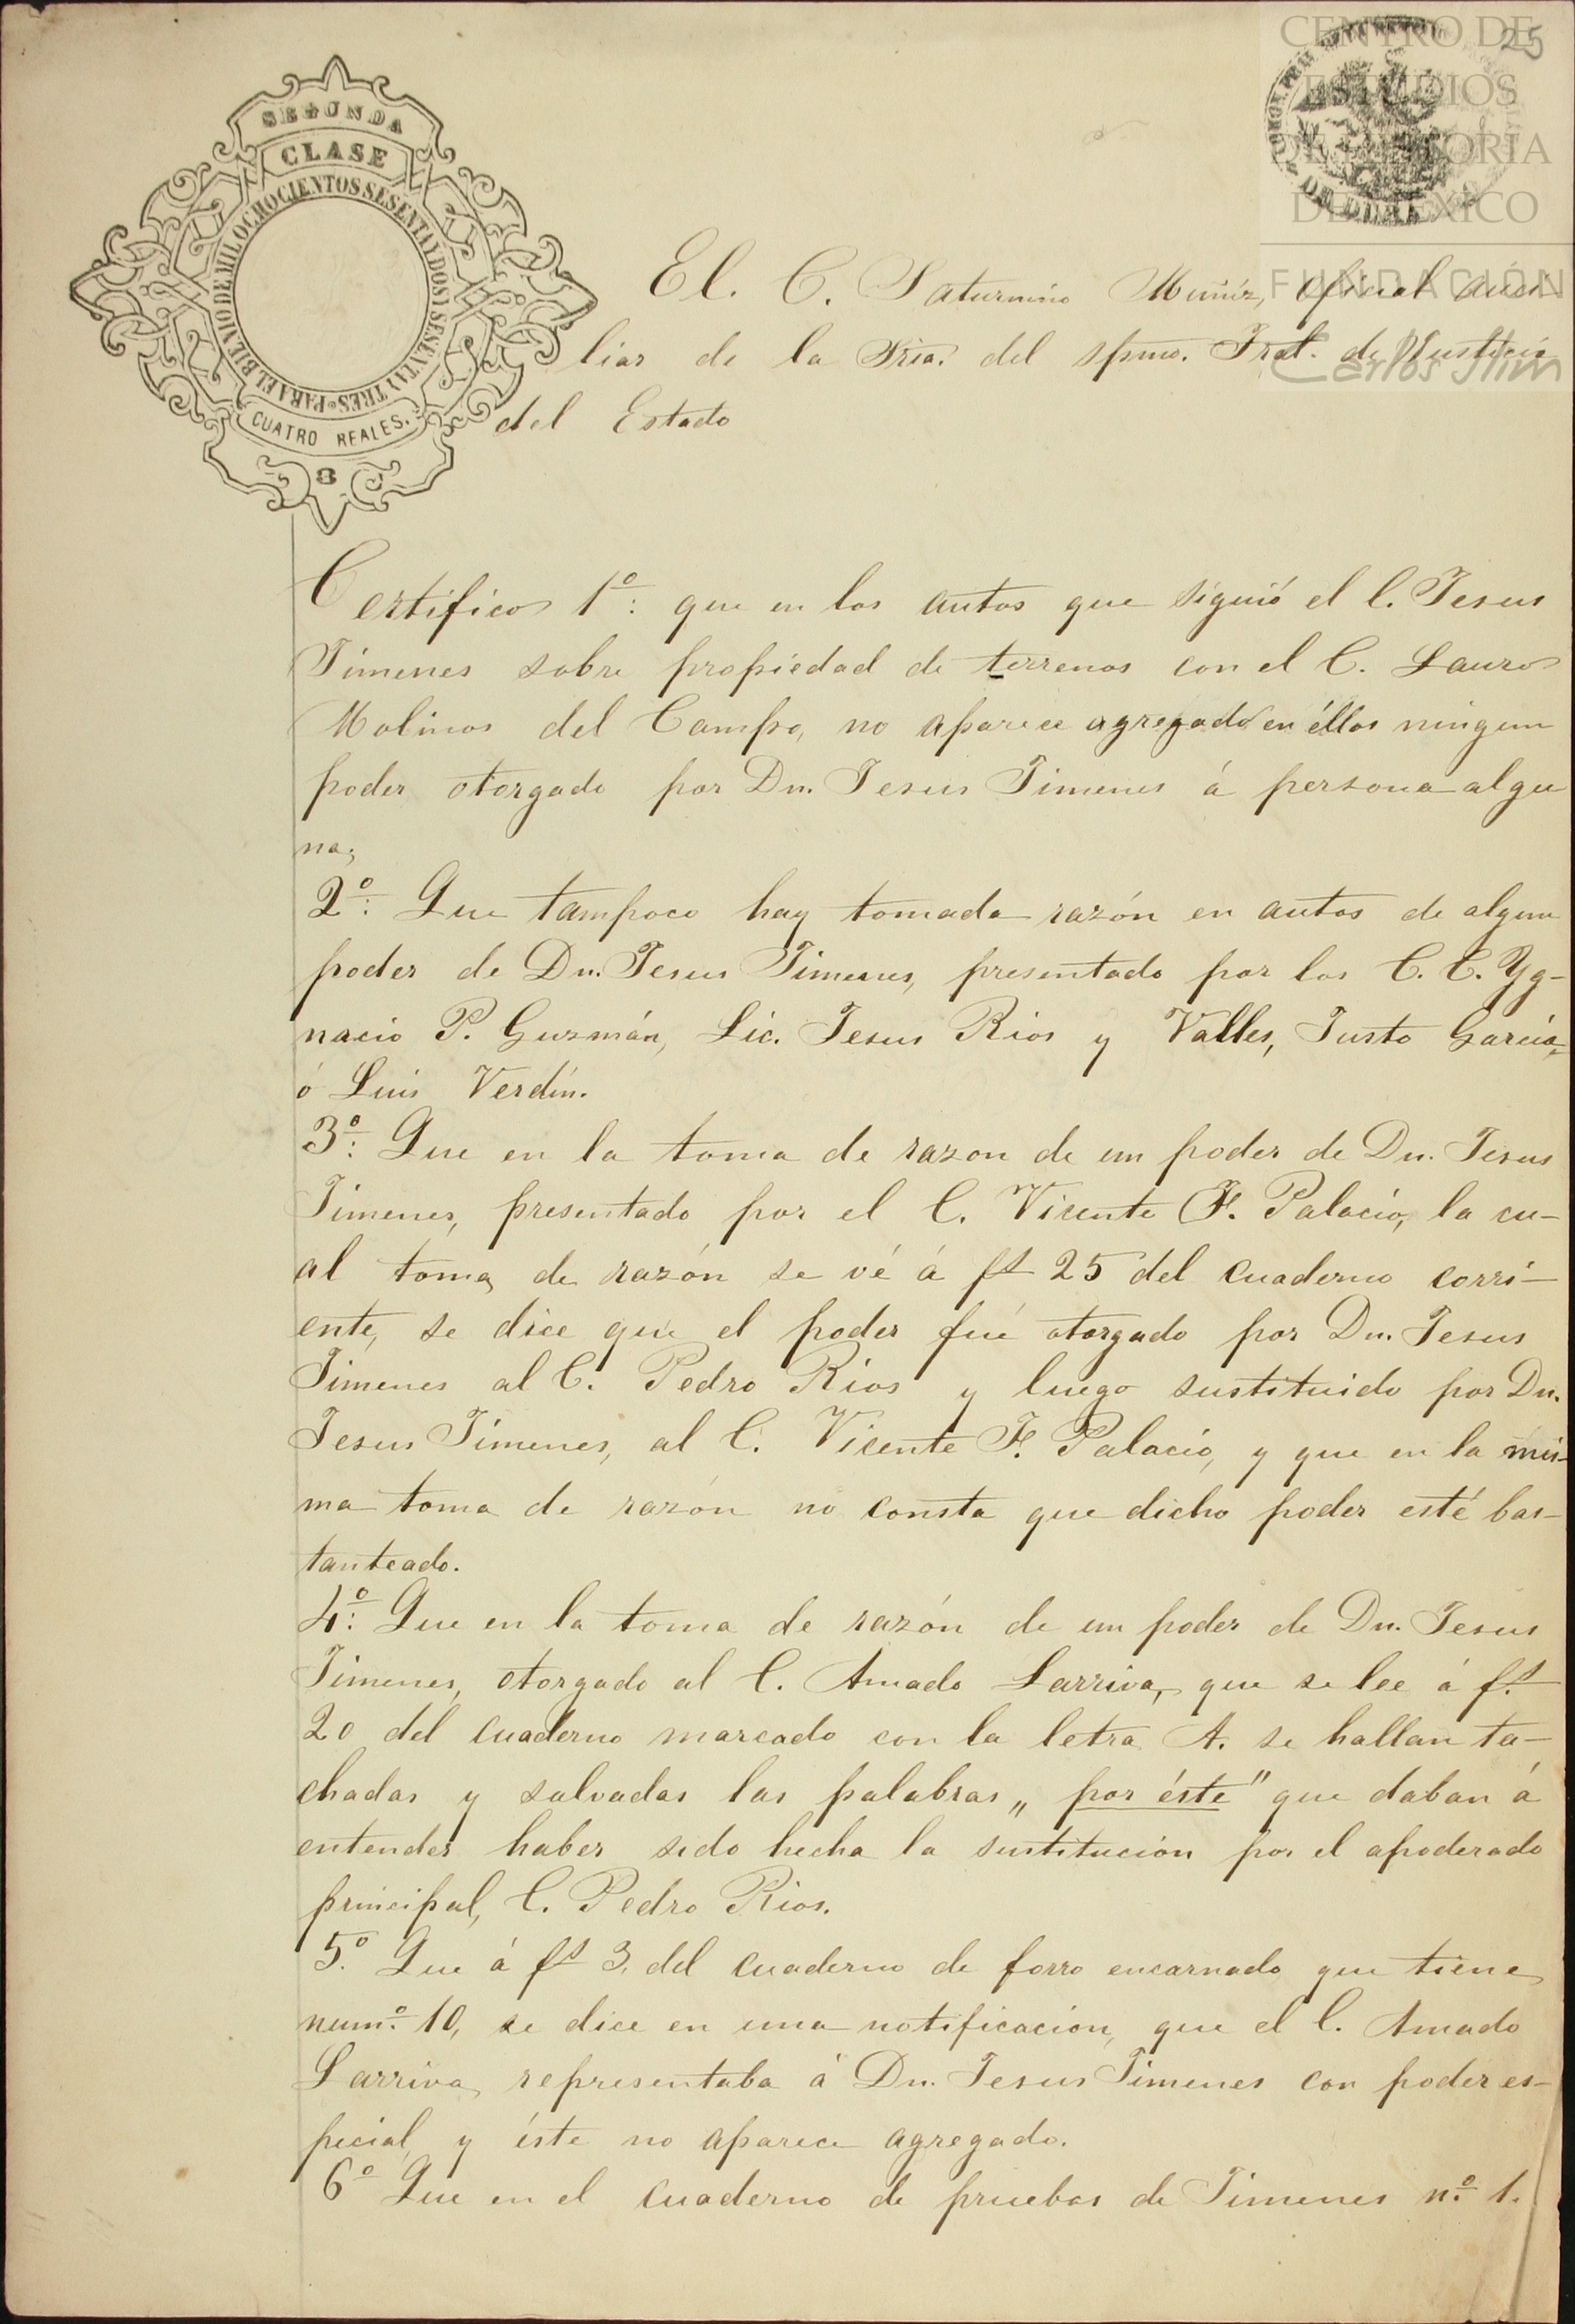 25
CENTRO DE
ESTUDIOS
DE HISTORIA
DE MÉXICO
FUNDACIÓN
Carlos Slim
SEGUNDA
CLASE
PARA EL BIENIO DE MIL OCHOCIENTOS SESENTA Y DOS Y SESENTA Y TRES
CUATRO REALES.
S 8
El. C. Saturnino Muñiz, oficial auci-
liar de la Sria. del Spmo. Tral. de Justicia
del Estado
Certifico 1º: que en los autos que siguió el C. Jesus
Jimenes sobre propiedad de terrenos con el C. Lauro
Molinos del Campo, no aparece agregado en éllos ningun
poder otorgado por Dn. Jesus Jimenes á persona algu
na;
2º: Que tampoco hay tomada razón en autos de algun
poder de Dn. Jesus Jimenes, presentado por los C. C. Yg-
nacio P. Guzmán, Lic. Jesus Rios y Valles, Justo García,
ó Luis Verdín.
3º: Que en la toma de razon de un poder de Dn. Jesus
Jimenes, presentado por el C. Vicente F. Palacio, la cu-
al toma de razón se vé á fs 25 del cuaderno corri-
ente, se dice que el poder fué otorgado por Dn. Jesus
Jimenes al C. Pedro Rios y luego sustituido por Dn.
Jesus Jimenes, al C. Vicente F. Palacio, y que en la mis-
ma toma de razón no consta que dicho poder esté bas-
tanteado.
4º: Que en la toma de razón de un poder de Dn. Jesus
Jimenes, otorgado al C. Amado Larriva, que se lee á f.s
20 del cuaderno marcado con la letra A. se hallan ta-
chadas y salvadas las palabras „ por éste" que daban á
entender haber sido hecha la sustitucion por el apoderado
principal, C. Pedro Rios.
5.º Que á fs 3. del cuaderno de forro encarnado que tiene
num.º 10, se dice en una notificacion, que el C. Amado
Larriva representaba á Dn. Jesus Jimenes con poder es-
pecial, y éste no aparece agregado.
6º Que en el cuaderno de pruebas de Jimenes n.º 1.